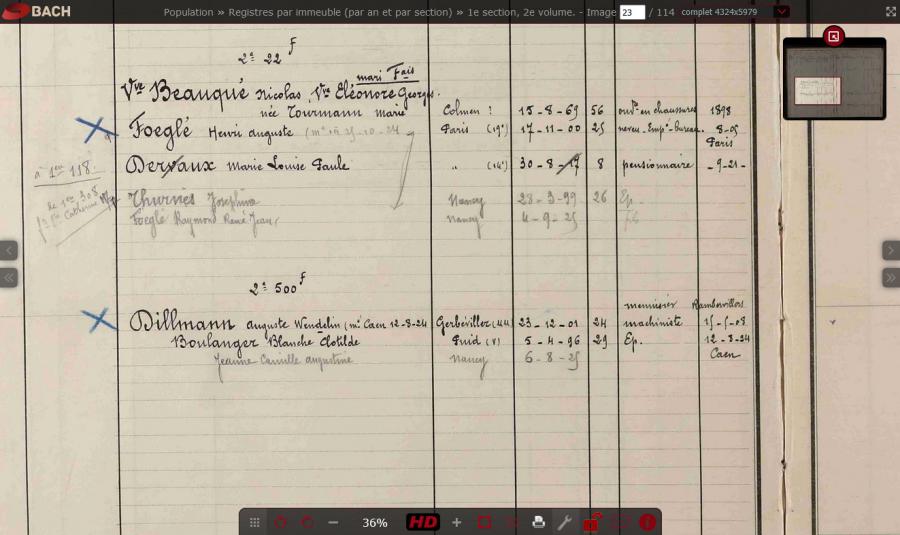 BACH
Population » Registres par immeuble (par an et par section) » 1e section, 2e volume. - Image 23 / 114 complet 4324x5979
2e 22 f
mari Fais
Vve Beauqué Nicolas, Vve Eléonore Georges.
née Tourmann marie Colmen ? 15-8-69 56 ouvre en chaussures 1898
Foeglé Henri auguste (me à 25-10-24 Paris (19e) 17-11-00 25 neveu. Empé-bureau. 8-05
Paris
à 1er 118.
Dervaux Marie Louise Paule " (14e) 30-8-17 8 pensionnaire -9-21-
de 1er 308
Ste Catherine
Thurnès Joséphine Nancy 28-3-99 26 Ep.
Foeglé Raymond René Jean Nancy 4-9-25 fs
2e 500 f
menuisier Rambervillers
Dillmann auguste Wendelin (me Caen 12-8-24 Gerbéviller (MM) 23-12-01 24 machiniste 15-5-08
Boulanger Blanche Clotilde 5-4-96 29 Ep. 12-8-24
Jeanne Camille augustine Nancy 6-8-25 Caen
36% HD